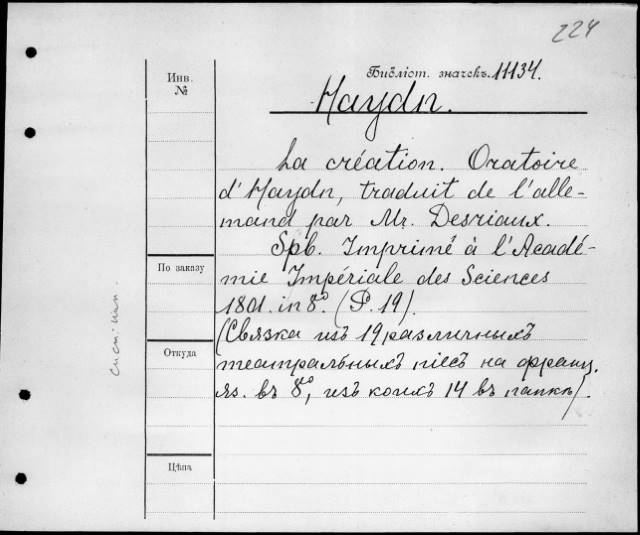 224
Инв. №
Библіот. значекъ 11134.
Haydn.
La création. Oratoire
d'Haydn, traduit de l'alle-
mand par Mr. Desriaux.
Spb. Imprimé à l'Acadé-
mie Impériale des Sciences
1801. in 8º. (P. 19).
(Связка изъ 19 различныхъ
театральныхъ піесъ на франц.
яз. въ 8º, изъ коихъ 14 въ папкѣ).
По заказу
Откуда
Цѣна